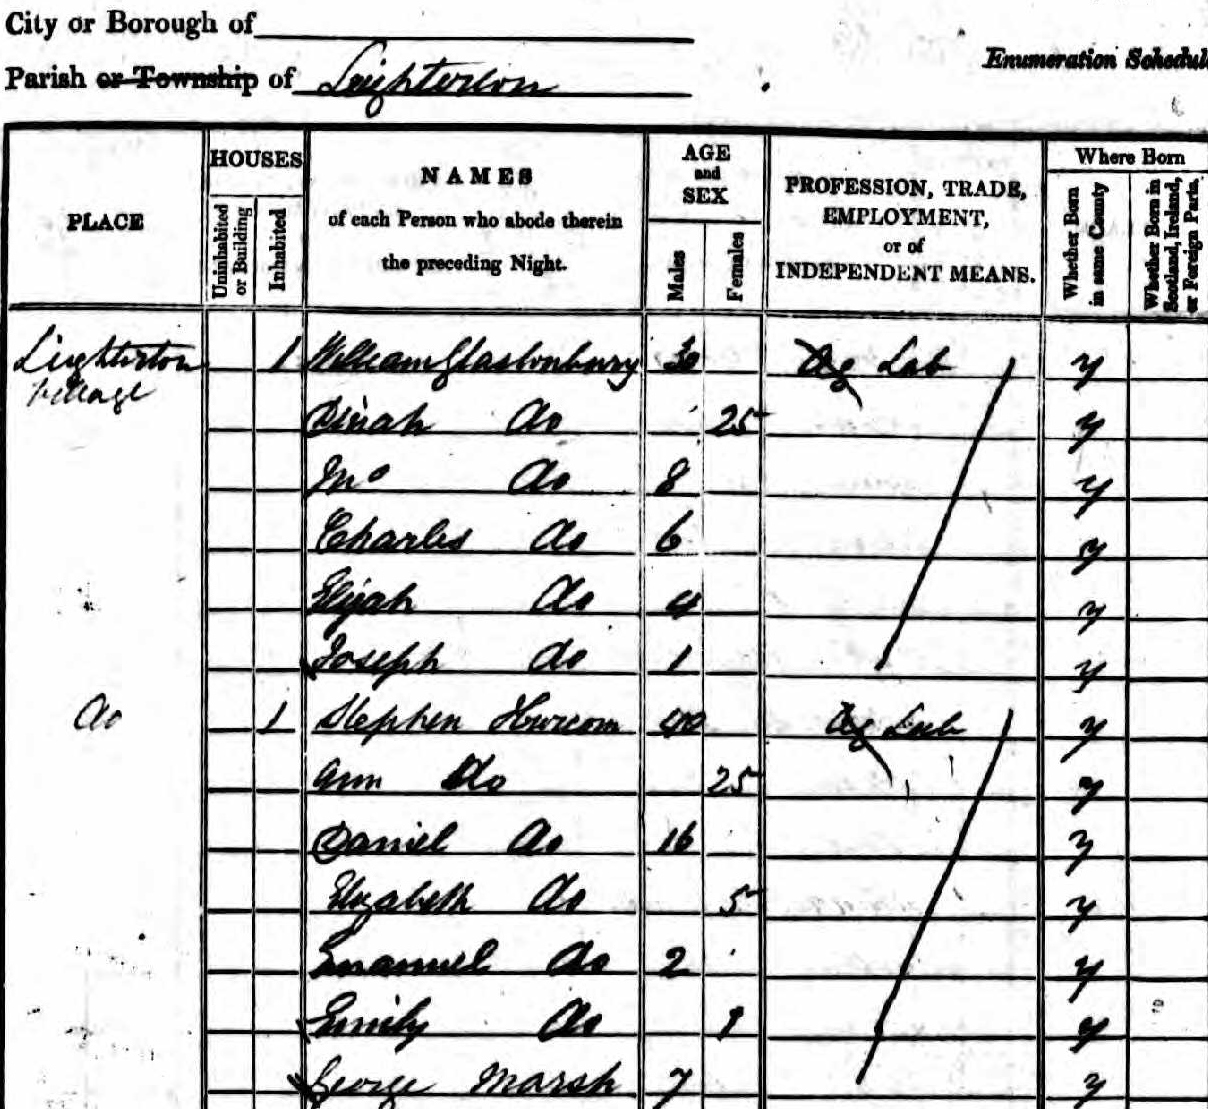 City or Borough of
Parish or Township of Leighterton
Enumeration Schedul
PLACE
HOUSES
Uninhabited or Building
Inhabited
NAMES
of each Person who abode therein
the preceding Night.
AGE
and
SEX
Males
Females
PROFESSION, TRADE,
EMPLOYMENT,
or of
INDEPENDENT MEANS.
Where Born
Whether Born in same County
Whether Born in Scotland, Ireland, or Foreign Parts.
Leighterton 1 William Glastonbury 30 Ag Lab y
Village
Dinah do 25 y
Jno do 8 y
Charles do 6 y
Elijah do 4 y
Joseph do 1 y
do 1 Stephen Hurcom 40 Ag Lab y
Ann do 25 y
Daniel do 16 y
Elizabeth do 5 y
Emanuel do 2 y
Emily do 1 y
George Marsh 7 y